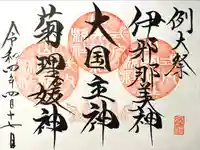 例大祭
伊邪那美神
大国主神
菊理媛神
令和四年四月十一日